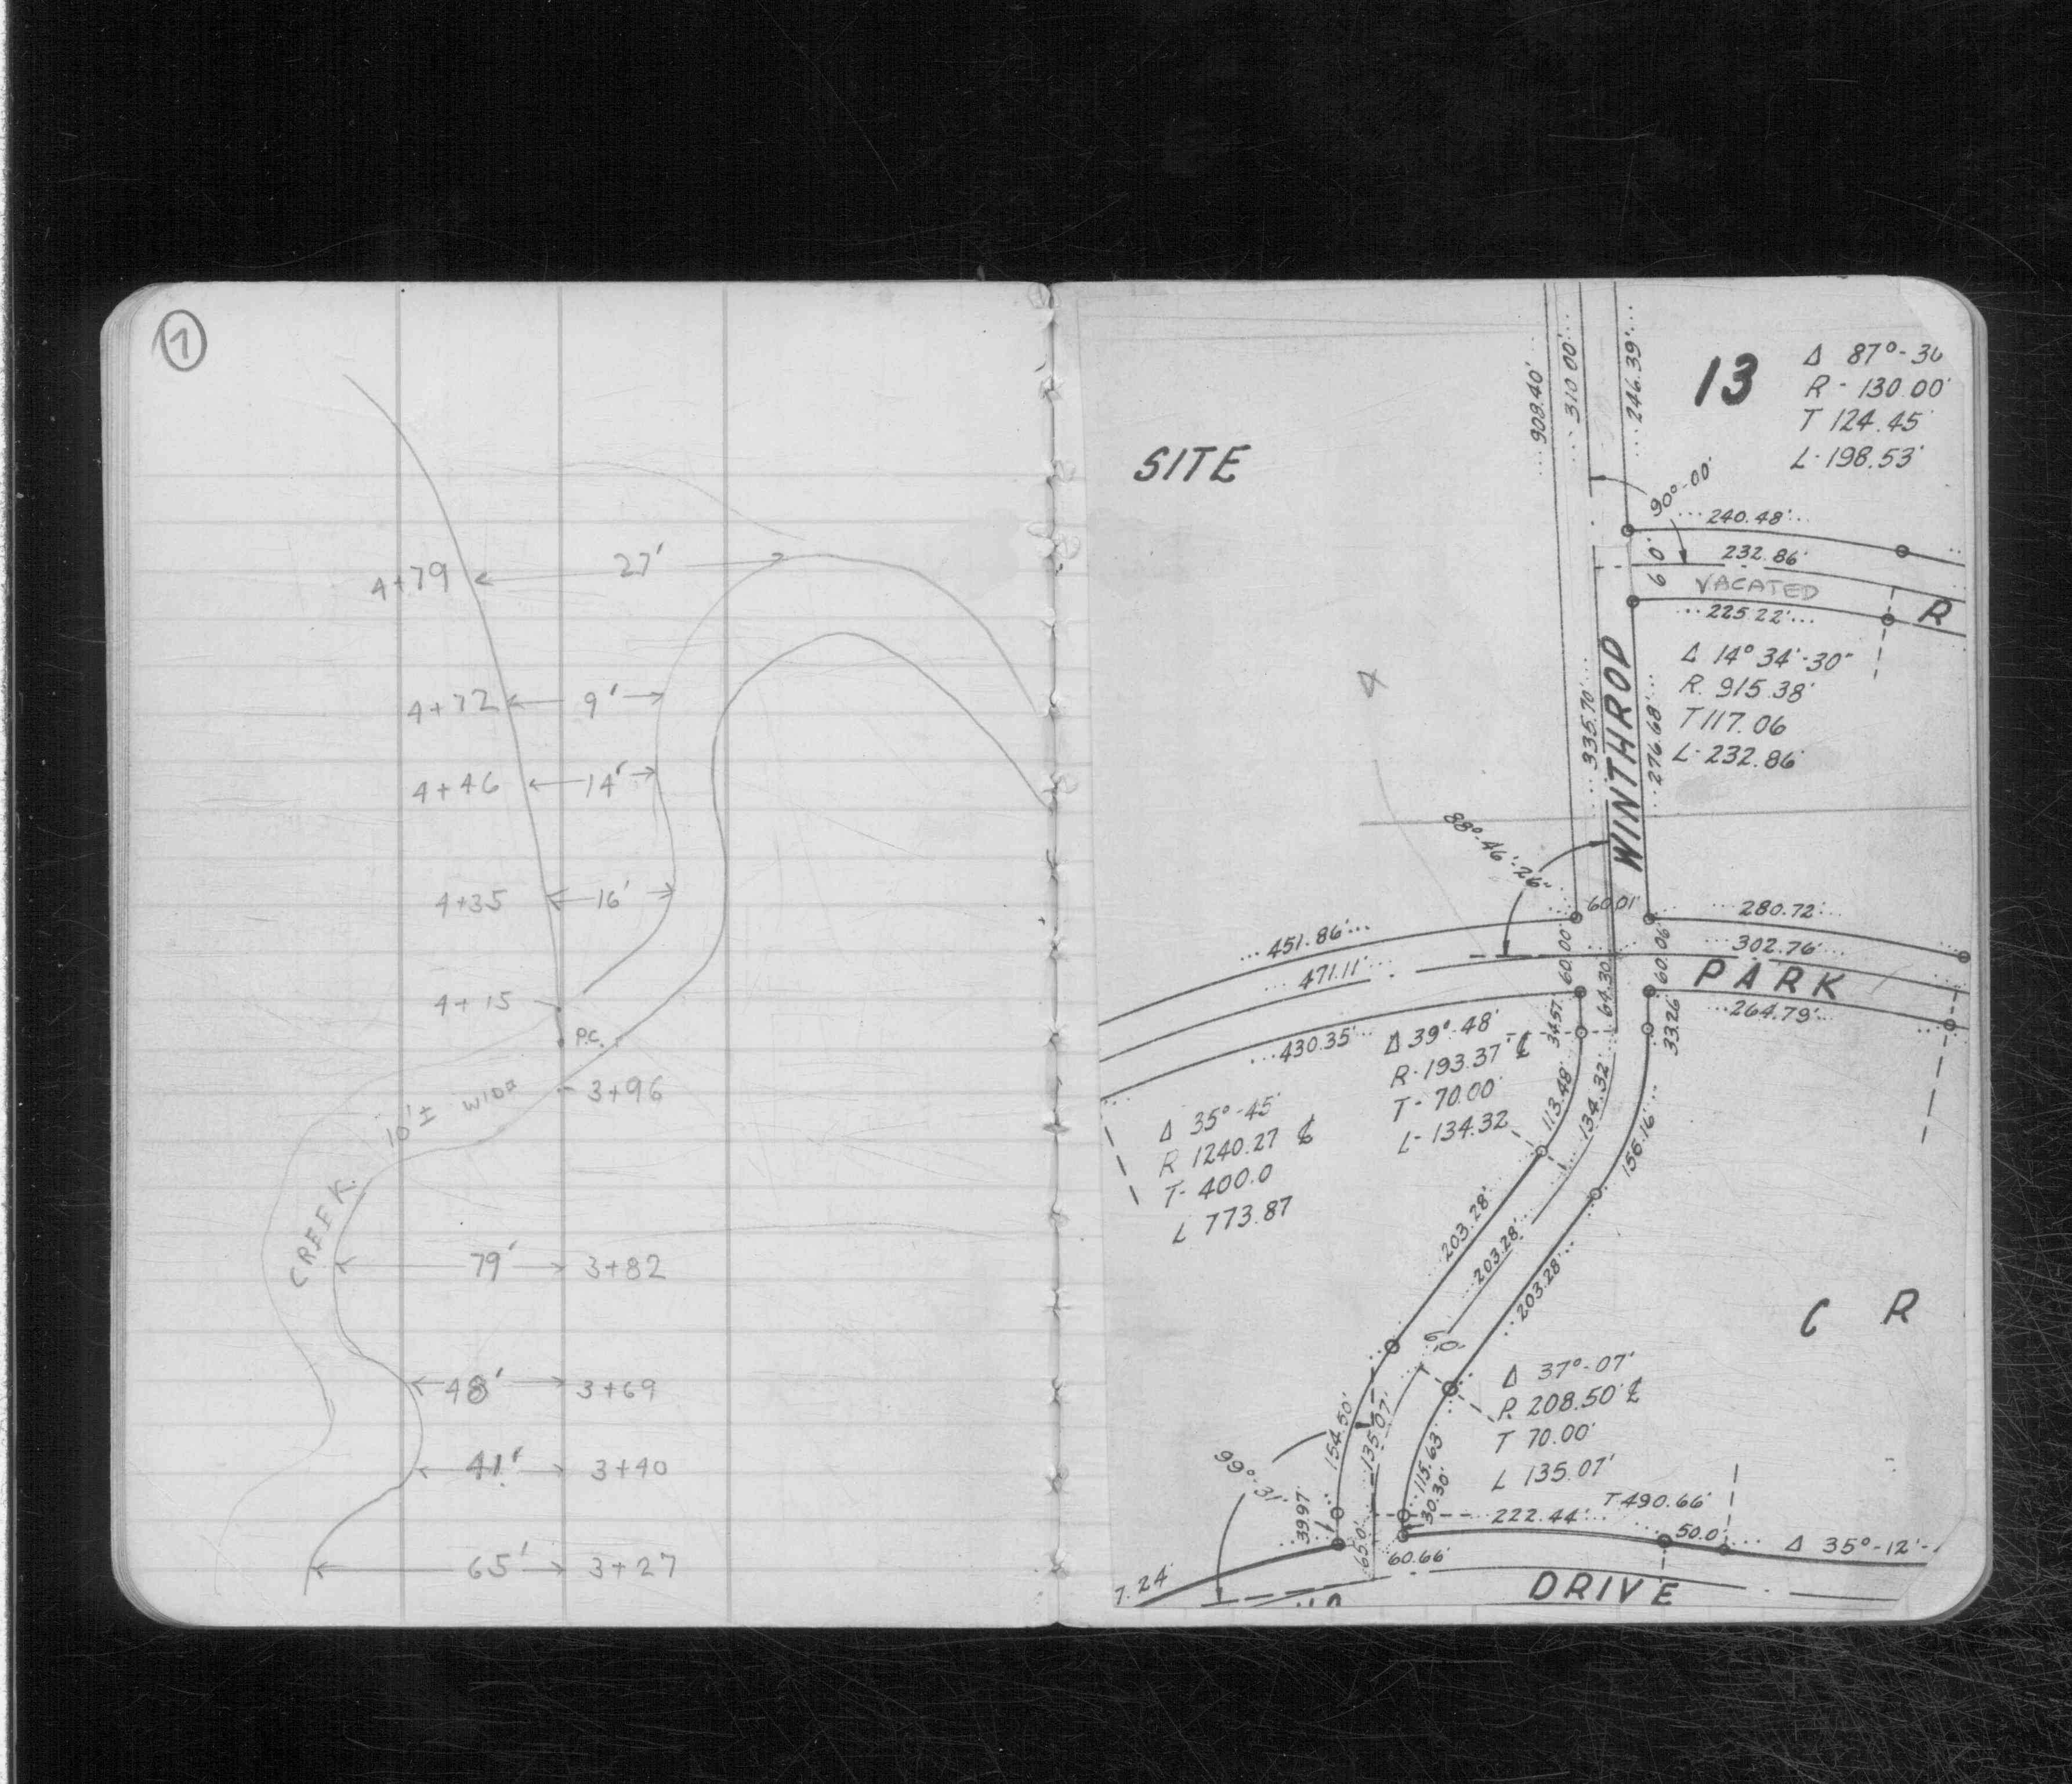 1
4+79 27'
4+72 9'
4+46 14'
4+35 16'
4+15
P.C.
10'± WIDE
3+96
CREEK
79' 3+82
48' 3+69
41' 3+40
65' 3+27
SITE
908.40'
310.00'
246.39'
13
Δ 87°-30
R - 130.00'
T 124.45'
L-198.53'
90°-00'
240.48'
232.86'
60'
VACATED
225.22'
R
Δ 14°34'-30"
R. 915.38'
T 117.06
L-232.86'
335.70'
WINTHROP
276.68'
88°-46'-26"
60.01'
280.72'
451.86'
302.76'
471.11'
60.00'
64.30
60.06'
PARK
264.79'
430.35'
34.57
33.26
Δ 39°-48'
R-193.37' ℄
T- 70.00'
L-134.32
113.48'
134.32
156.16'
Δ 35°-45'
R 1240.27 ℄
T- 400.0
L 773.87
203.28'
203.28'
203.28'
60.
C R
Δ 37°-07'
R. 208.50' ℄
T 70.00'
L 135.07'
154.50'
135.07'
115.63
30.30'
99°-31'
39.97'
65.0'
60.66'
222.44'
T 490.66'
50.0'
Δ 35°-12'-
7.24'
DRIVE